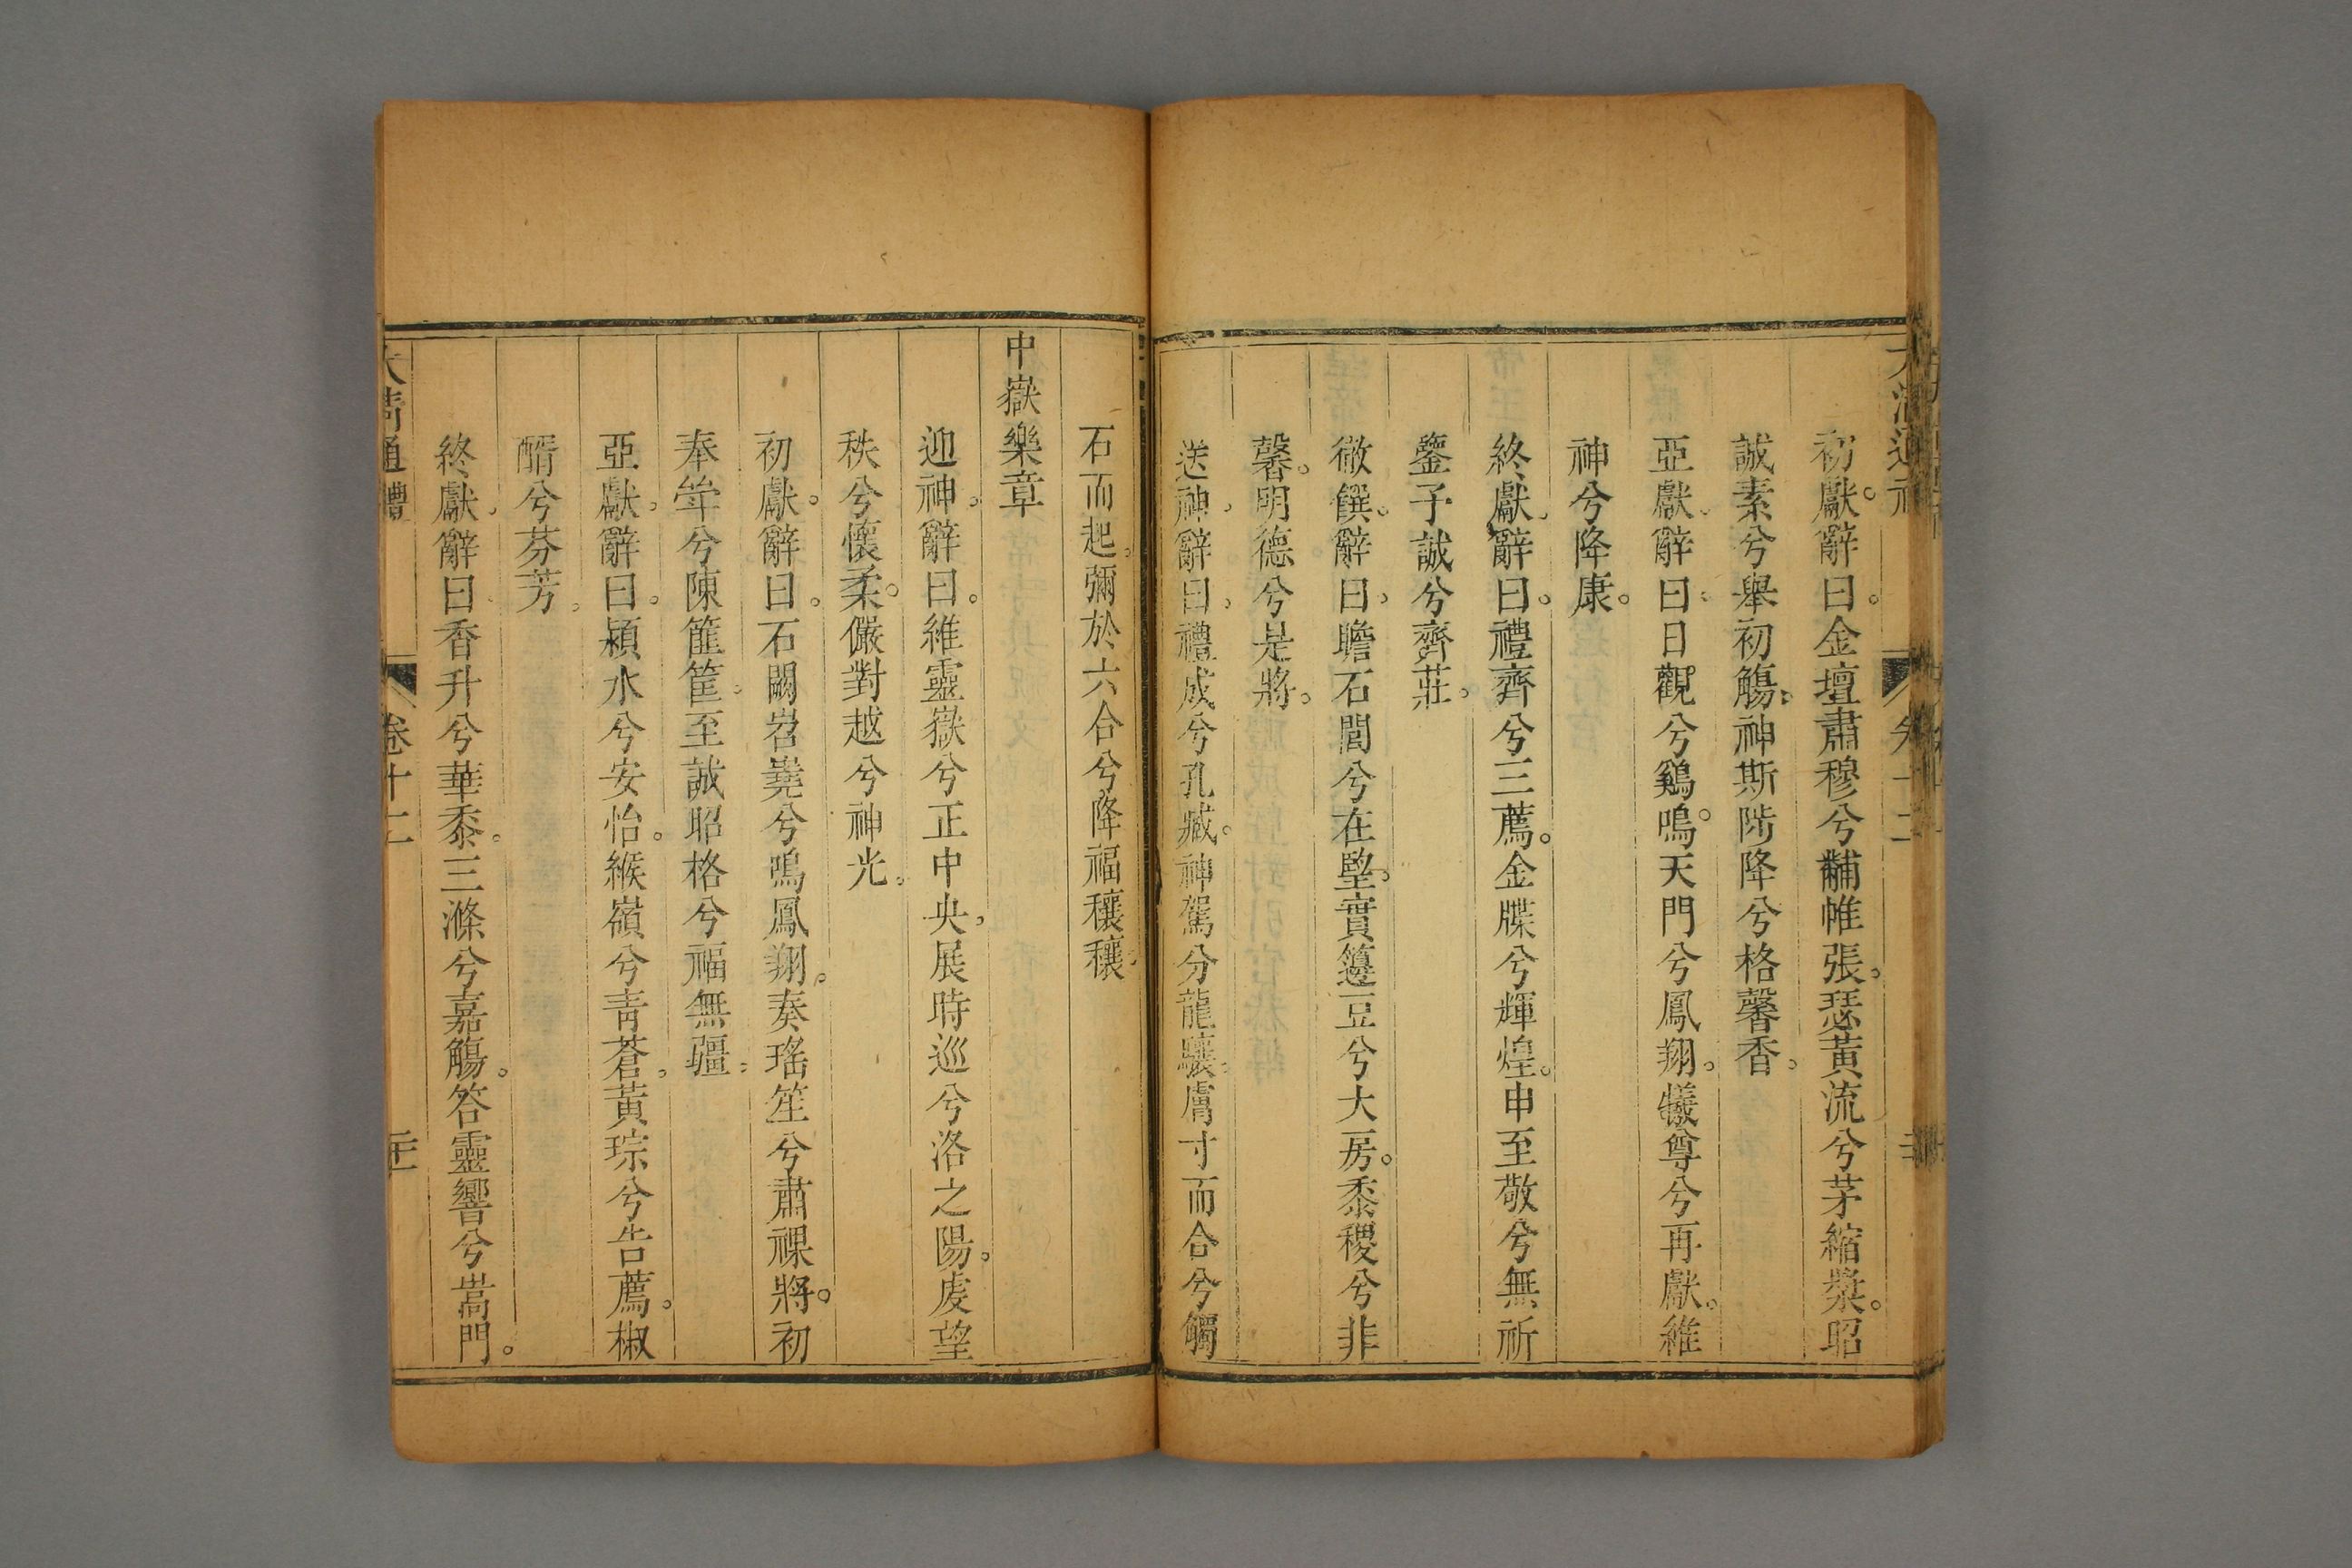 初獻。辭曰。金壇肅穆兮黼帷張。瑟黃流兮茅縮漿。昭
誠素兮舉初觴。神斯陟降兮格馨香。
亞獻。辭曰。日觀兮鷄鳴。天門兮鳳翔。犧尊兮再獻。維
神兮降康。
終獻。辭曰。禮齊兮三薦。金牒兮輝煌。申至敬兮無祈
鑒予誠兮齊莊。
徹饌。辭曰。瞻石閭兮在望。實籩豆兮大房。黍稷兮非
馨。明德兮是將。
送神。辭曰。禮成兮孔臧。神駕兮龍驤。膚寸而合兮觸
石而起。彌於六合兮降福穰穰。
中嶽樂章
迎神。辭曰。維靈嶽兮正中央。展時巡兮洛之陽。虔望
秩兮懷柔。儼對越兮神光。
初獻。辭曰。石闕岧嶤兮鳴鳳翔。奏瑤笙兮肅祼將。初
奉斝兮陳篚筐。至誠昭格兮福無疆。
亞獻。辭曰。潁水兮安怡。緱嶺兮青蒼。黃琮兮告薦。椒
醑兮芬芳。
終獻。辭曰。香升兮華黍。三滌兮嘉觴。答靈響兮嵩門。
大清通禮 卷十二